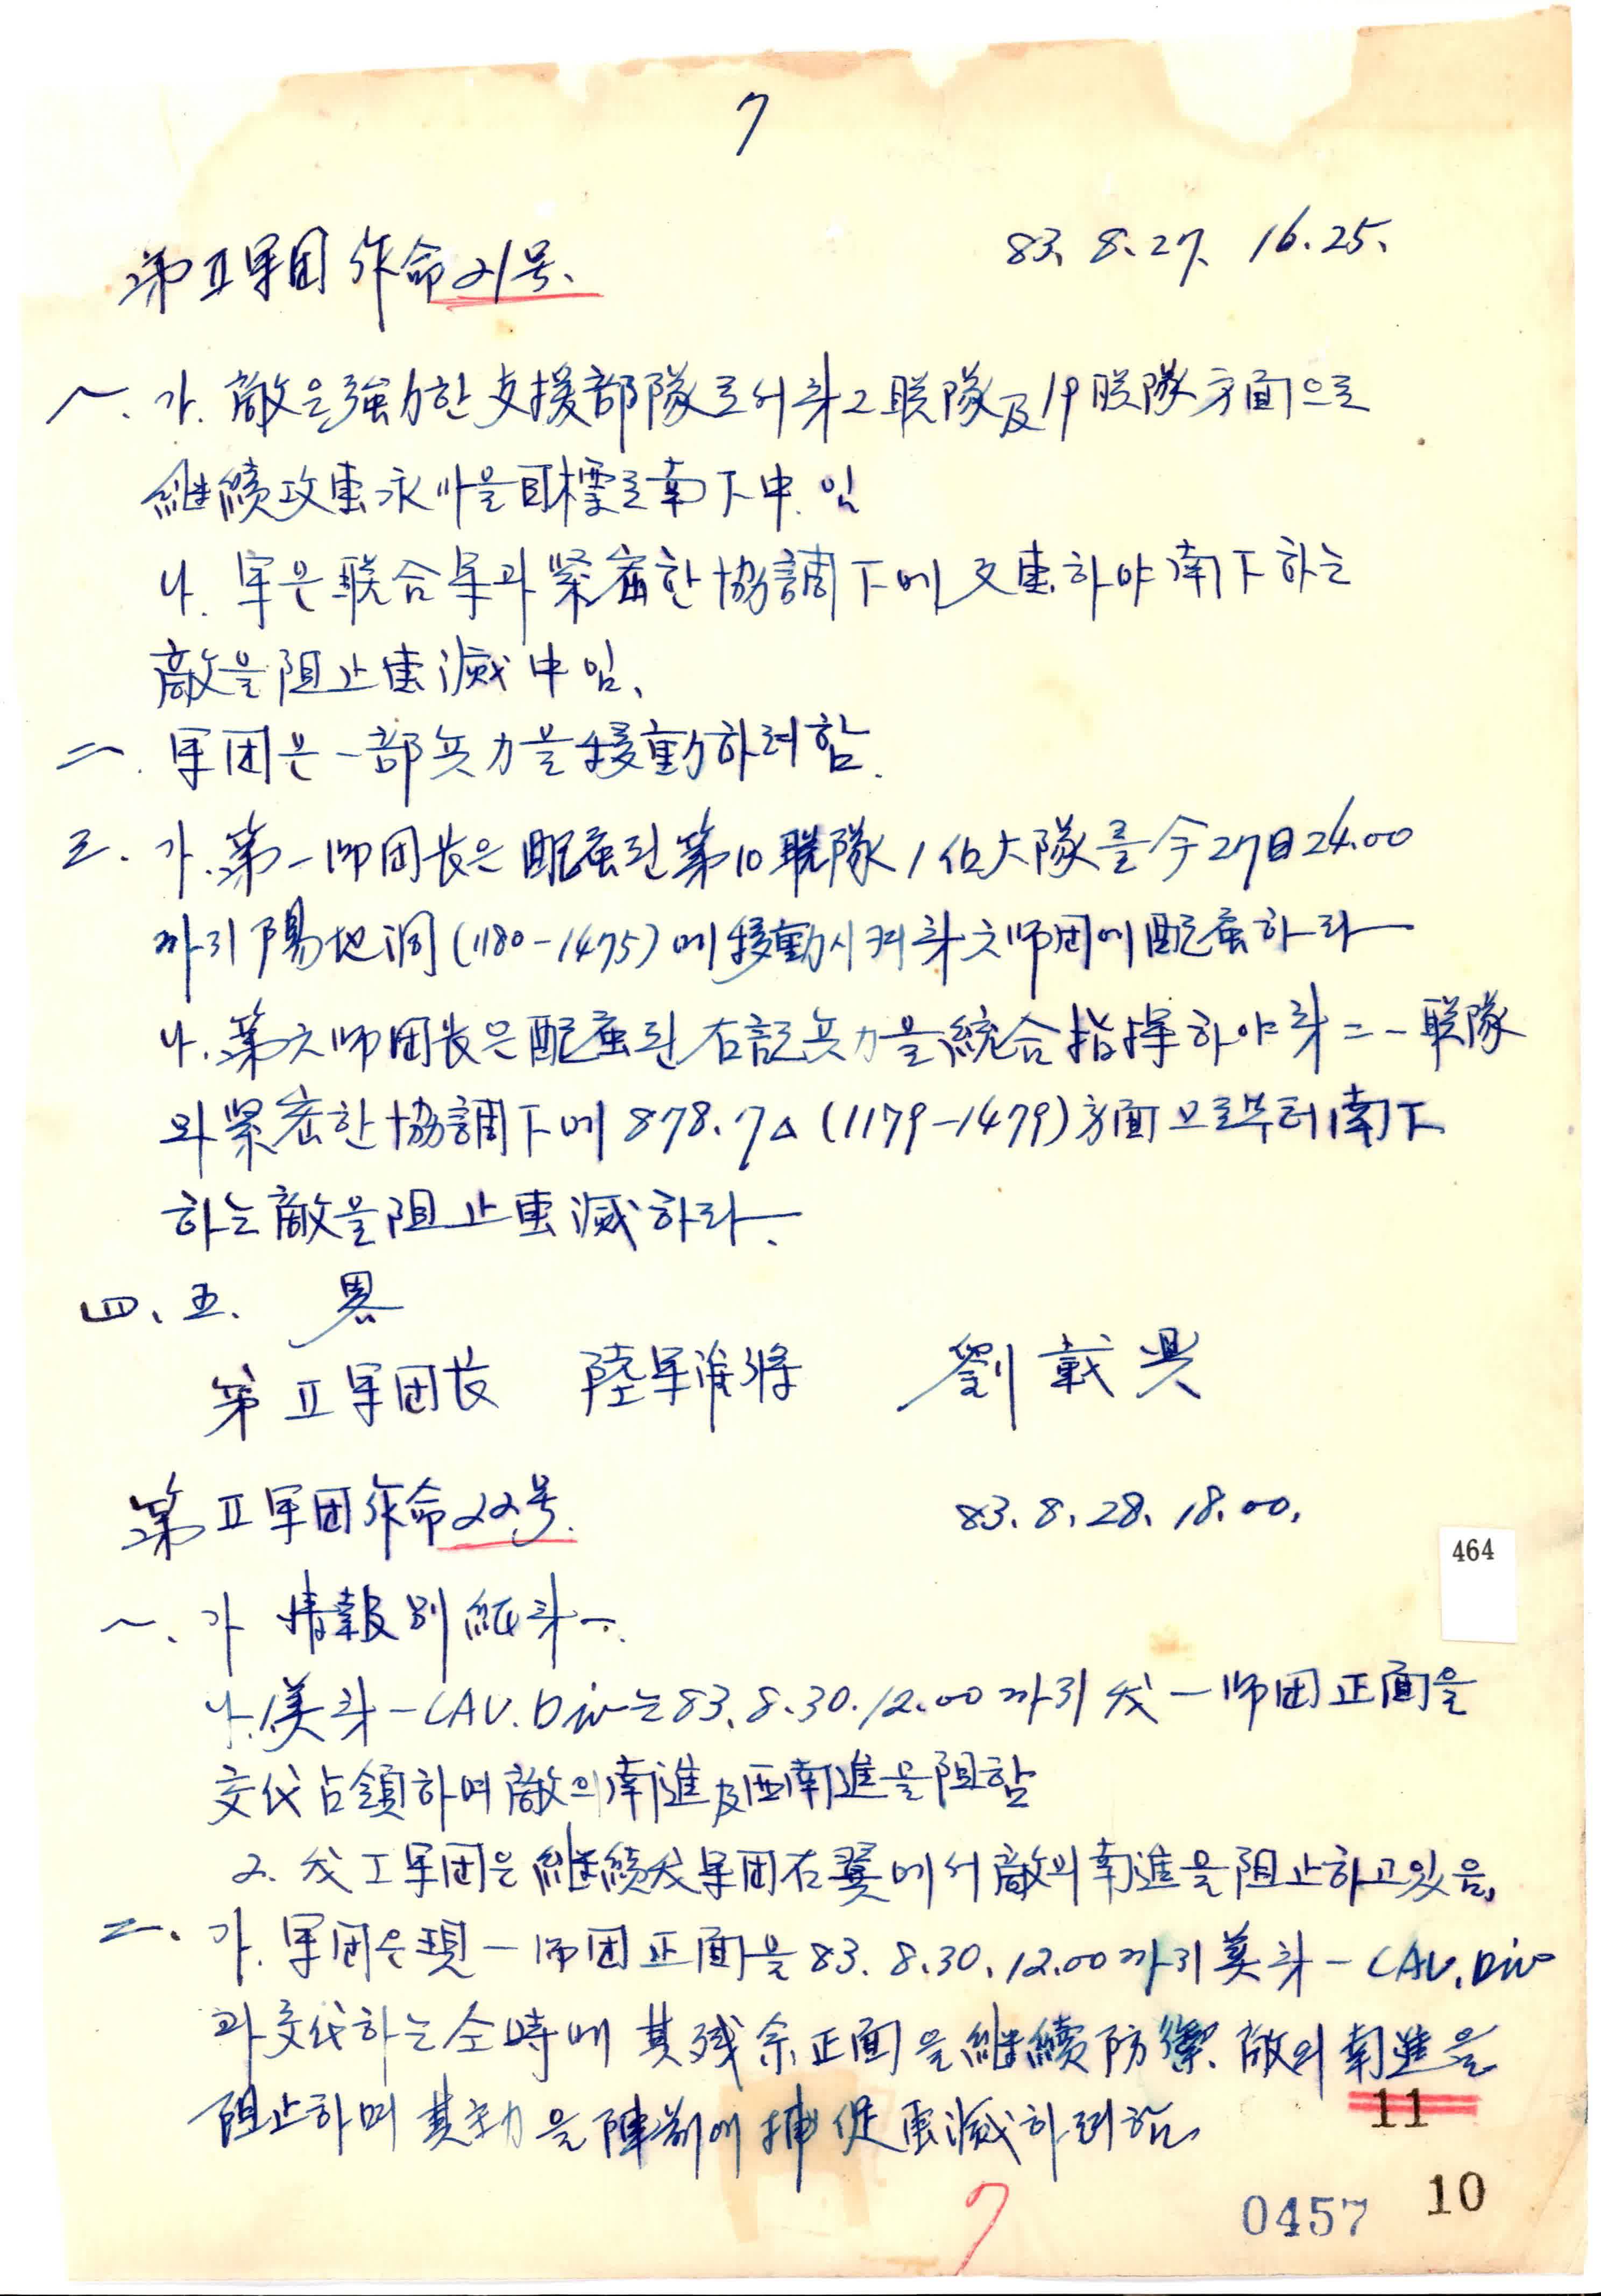 7
第Ⅱ军团 作命21号、
83. 8. 27. 16.25.
一. 가. 敵은 強力한 支援部隊로서 第2联隊及19联隊方面으로
継続攻擊永川을目標로南下中.임
나. 军은 联合军과 緊密한 協調下에 反擊하야 南下하는
敵을 阻止擊滅 中임、
二. 军团은 一部兵力을 移動하려함.
三. 가. 第一师团长은 配属된 第10联隊 1個大隊를 今27日24.00
까지 陽地洞(1180-1475)에 移動시켜 第六师团에配属하라
나. 第六师团长은 配属된 右記兵力을 統合指揮하야 第二一联隊
와 緊密한 協調下에 878.7△ (1179-1479)方面으로부터 南下
하는 敵을 阻止擊滅하라.
四、五. 畧
第Ⅱ军团长 陸军准將 劉載興
第Ⅱ军团作命22号.
83. 8. 28. 18.00.
464
一、가 情報別紙第一.
나.1美第一CAV.Div는83.8.30.12.00까지 我一师团正面을
交代占領하며 敵의南進及西南進을阻함
2. 我Ⅰ军团은 継続我军团右翼에서 敵의南進을阻止하고있음.
二. 가. 军团은現一师团正面을83. 8.30. 12.00까지美第一CAV.Div
과交代하는仝時에 其残余正面을継續防禦 敵의南進을
阻止하며 其主力을陣前에捕促擊滅하려함.
11
10
0457
7